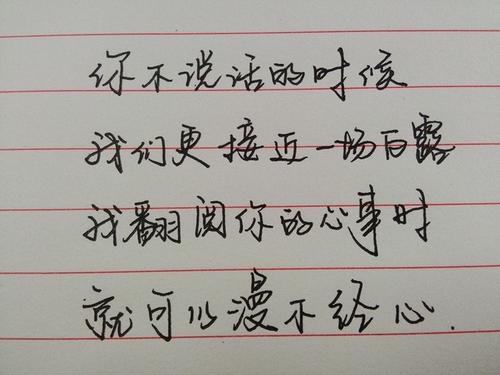 你不说话的时候
我们更接近一场白露
我翻阅你的心事时
就可以漫不经心.